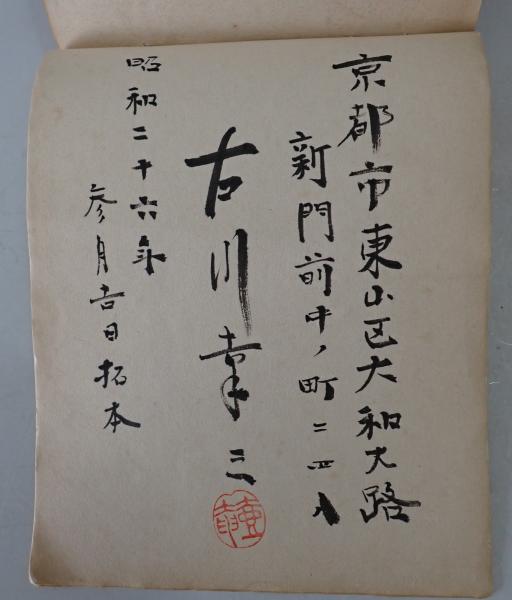 京都市東山区大和大路
新門前中ノ町二四八
古川幸三
昭和二十六年
参月吉日拓本